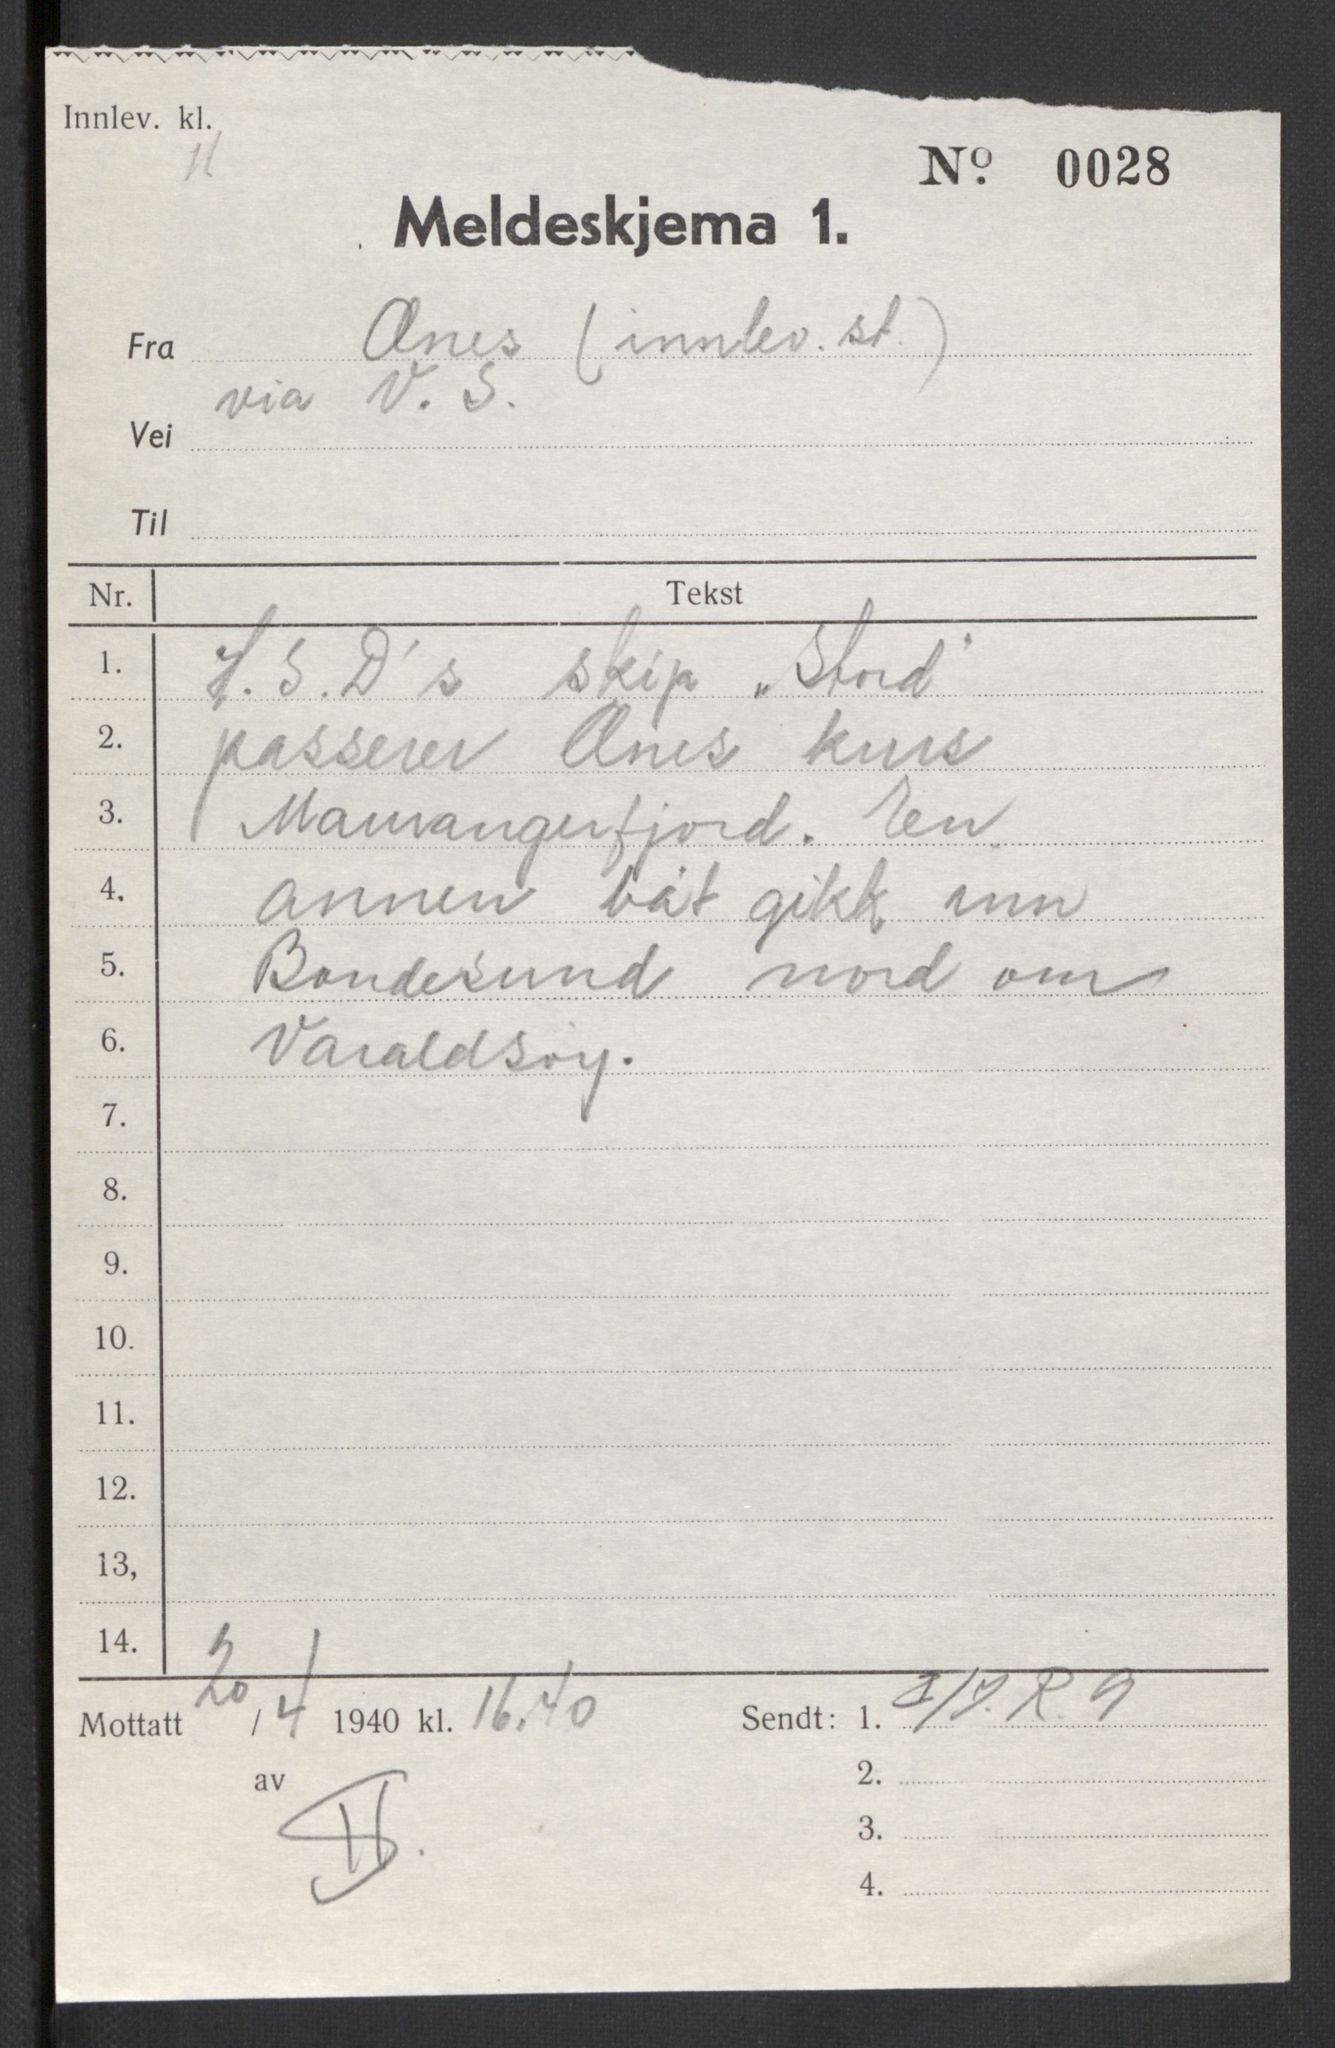 Innlev. kl.
No 0028
Meldeskjema 1.
Fra Ænes (innlev. st.)
via V. S.
Vei
Til
Nr. Tekst
1. H.S.D's skip „Stord"
2. passerer Ænes kurs
3. Maurangerfjord. Een
4. annen båt gikk inn
5. Bondesund nord om
6. Varaldsøy.
7.
8.
9.
10.
11.
12.
13,
14.
Mottatt 20/4 1940 kl. 16.40 Sendt: 1. I/J.R. 9
av 2.
3.
4.